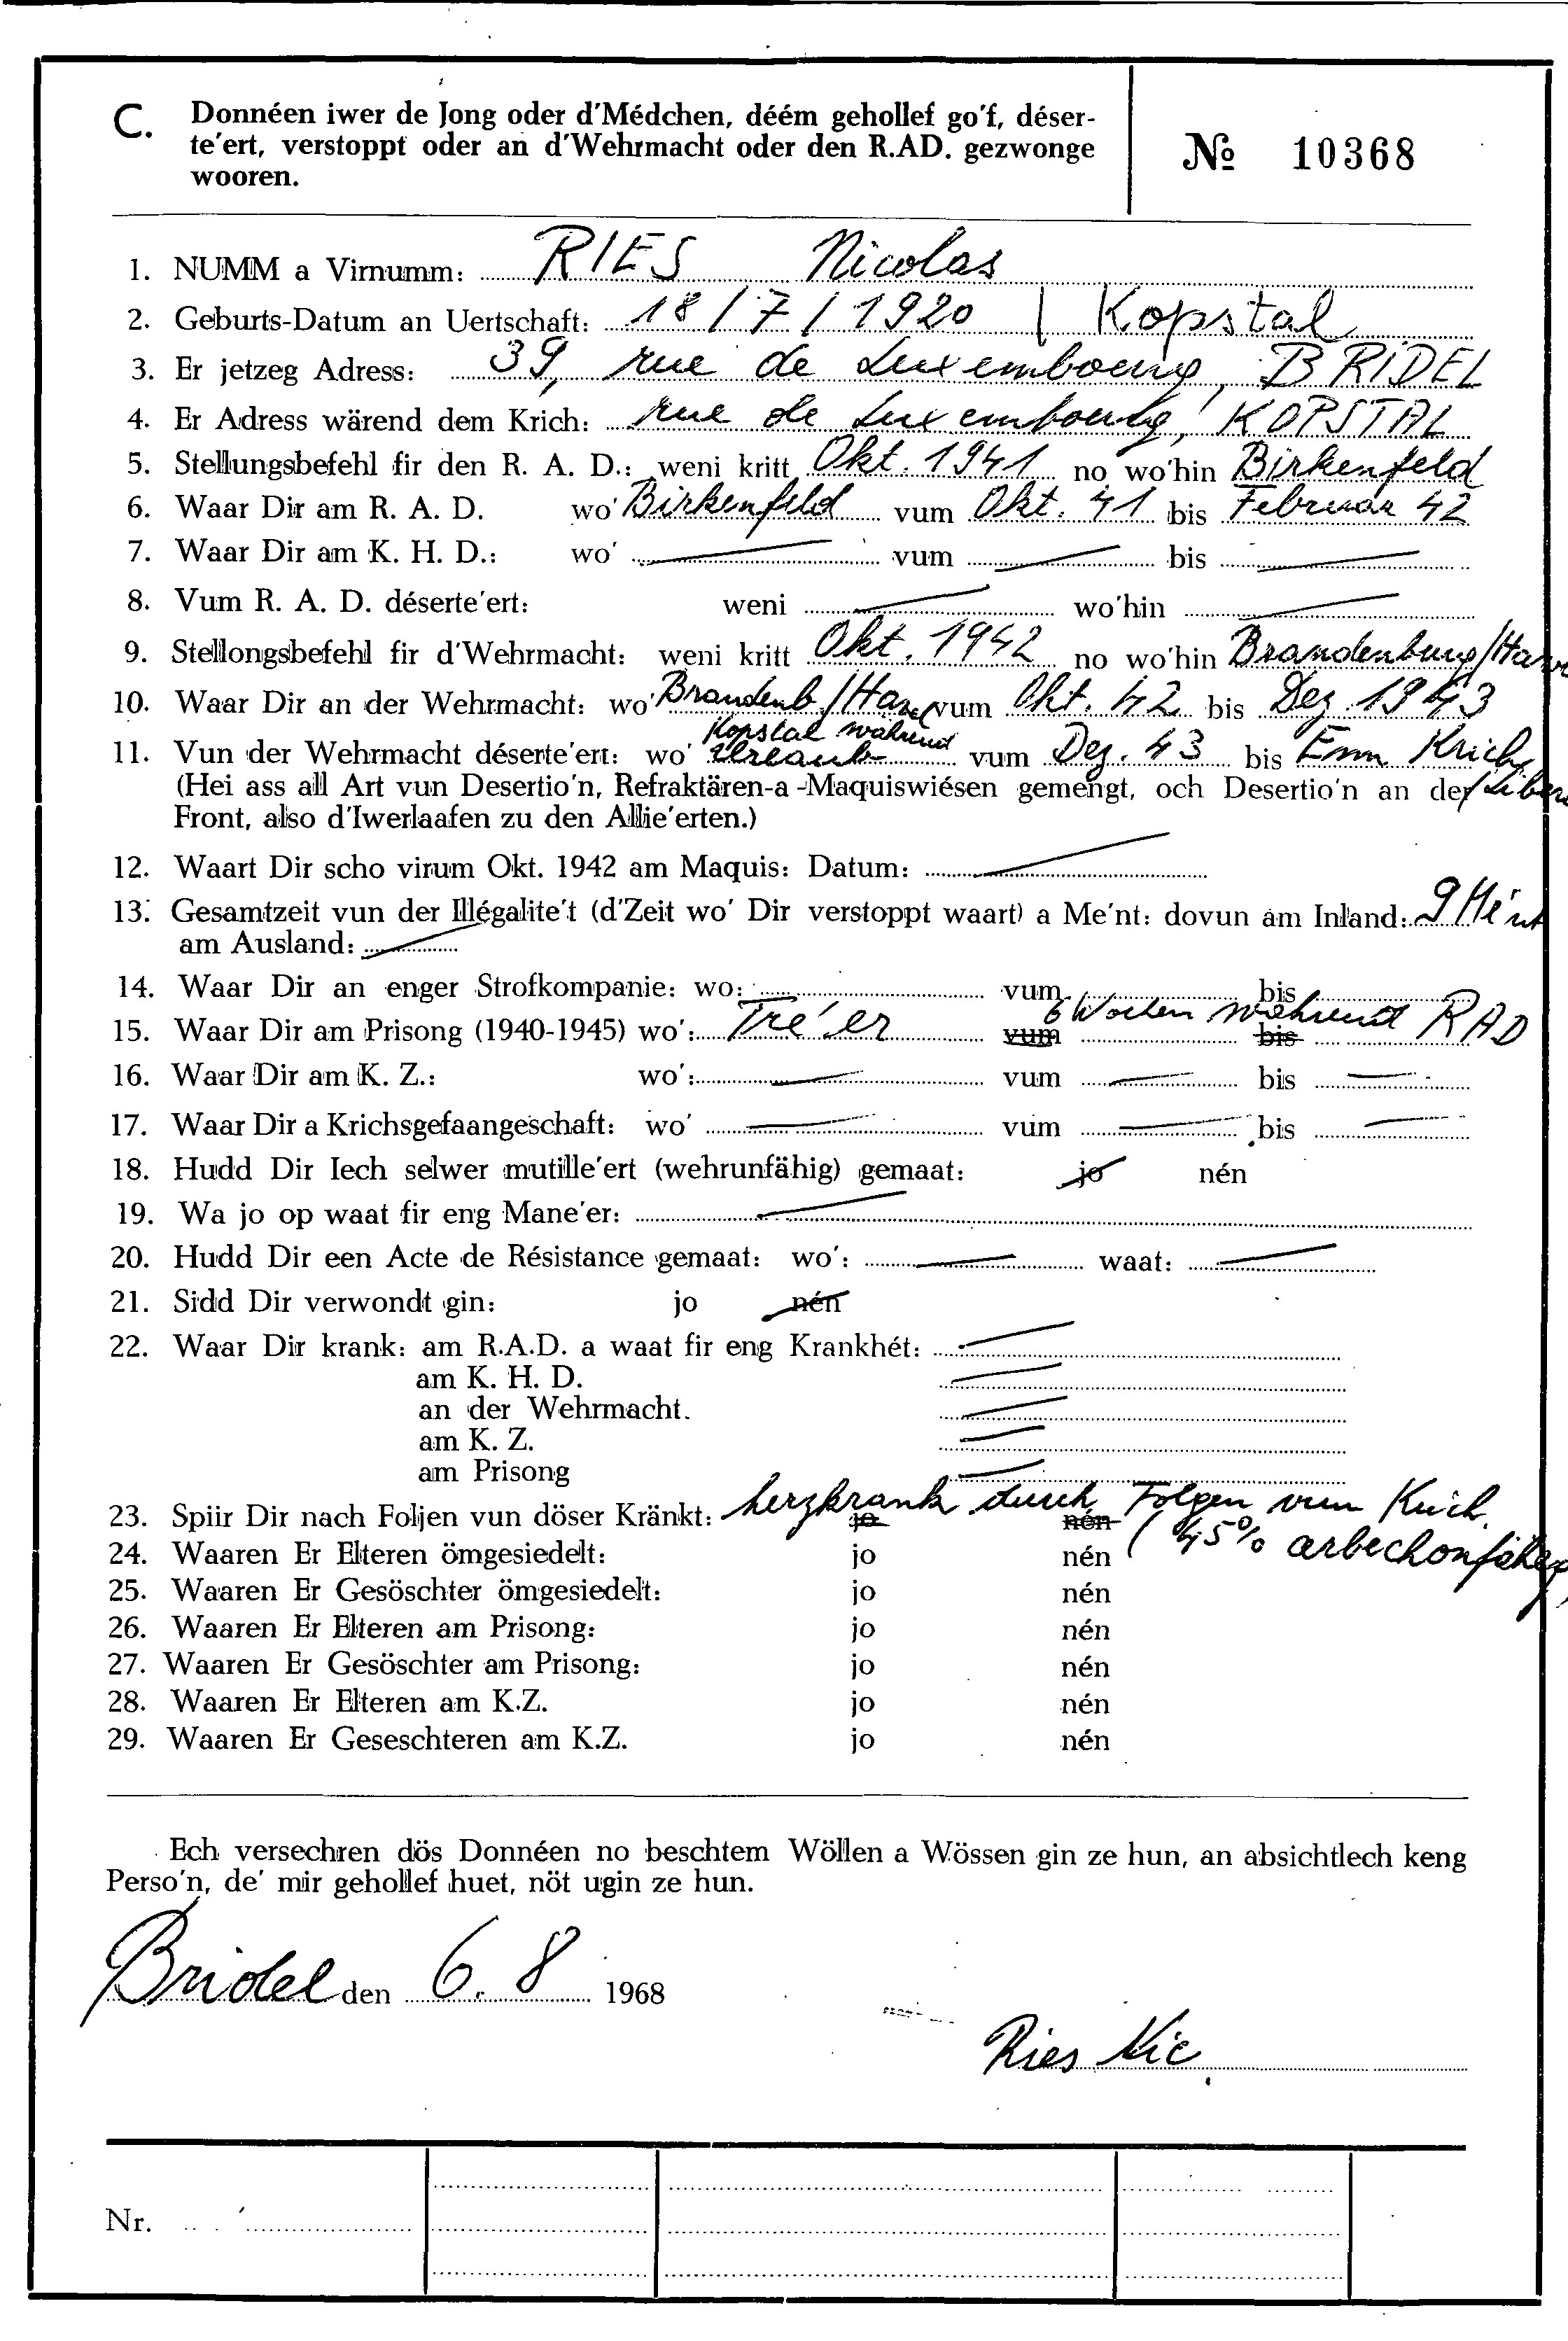 C. Donnéen iwer de Jong oder d'Médchen, déém gehollef go'f, déser-
te'ert, verstoppt oder an d'Wehrmacht oder den R.AD. gezwonge
wooren.
№ 10368
1. NUMM a Virnumm: RIES Nicolas
2. Geburts-Datum an Uertschaft: 18/7/1920 | Kopstal
3. Er jetzeg Adress: 39, rue de Luxembourg, BRIDEL
4. Er Adress wärend dem Krich: rue de Luxembourg, KOPSTAL
5. Stellungsbefehl fir den R. A. D.: weni kritt Okt. 1941 no wo'hin Birkenfeld
6. Waar Dir am R. A. D. wo' Birkenfeld vum Okt. 41 bis Februar 42
7. Waar Dir am K. H. D.: wo' vum bis
8. Vum R. A. D. déserte'ert: weni wo'hin
9. Stellongsbefehl fir d'Wehrmacht: weni kritt Okt. 1942 no wo'hin Brandenburg/
10. Waar Dir an der Wehrmacht: wo' Brandenb./ vum Okt. 42 bis Dez. 1943
Kopstal während
11. Vun der Wehrmacht déserte'ert: wo' Urlaub vum Dez. 43 bis Enn Krich
(Hei ass all Art vun Desertio'n, Refraktären-a-Maquiswiésen gemengt, och Desertio'n an der
Front, also d'Iwerlaafen zu den Allie'erten.)
12. Waart Dir scho virum Okt. 1942 am Maquis: Datum:
13. Gesamtzeit vun der Illégalite't (d'Zeit wo' Dir verstoppt waart) a Me'nt: dovun am Inland: 9 Me'nt
am Ausland:
14. Waar Dir an enger Strofkompanie: wo: vum bis
15. Waar Dir am Prisong (1940-1945) wo': Tre'er vum bis 6 Wochen während RAD
16. Waar Dir am K. Z.: wo': vum bis
17. Waar Dir a Krichsgefaangeschaft: wo' vum bis
18. Hudd Dir Iech selwer mutille'ert (wehrunfähig) gemaat: jo nén
19. Wa jo op waat fir eng Mane'er:
20. Hudd Dir een Acte de Résistance gemaat: wo': waat:
21. Sidd Dir verwondt gin: jo nén
22. Waar Dir krank: am R.A.D. a waat fir eng Krankhét:
am K. H. D.
an der Wehrmacht.
am K. Z.
am Prisong
23. Spiir Dir nach Foljen vun döser Kränkt: jo nén herzkrank durch Folgen vum Krich.
(45% arbechonfäheg)
24. Waaren Er Elteren ömgesiedelt: jo nén
25. Waaren Er Gesöschter ömgesiedelt: jo nén
26. Waaren Er Elteren am Prisong: jo nén
27. Waaren Er Gesöschter am Prisong: jo nén
28. Waaren Er Elteren am K.Z. jo nén
29. Waaren Er Geseschteren am K.Z. jo nén
Ech versechren dös Donnéen no beschtem Wöllen a Wössen gin ze hun, an absichtlech keng
Perso'n, de' mir gehollef huet, nöt ugin ze hun.
Bridel den 6. 8 1968
Ries Nic.
Nr.